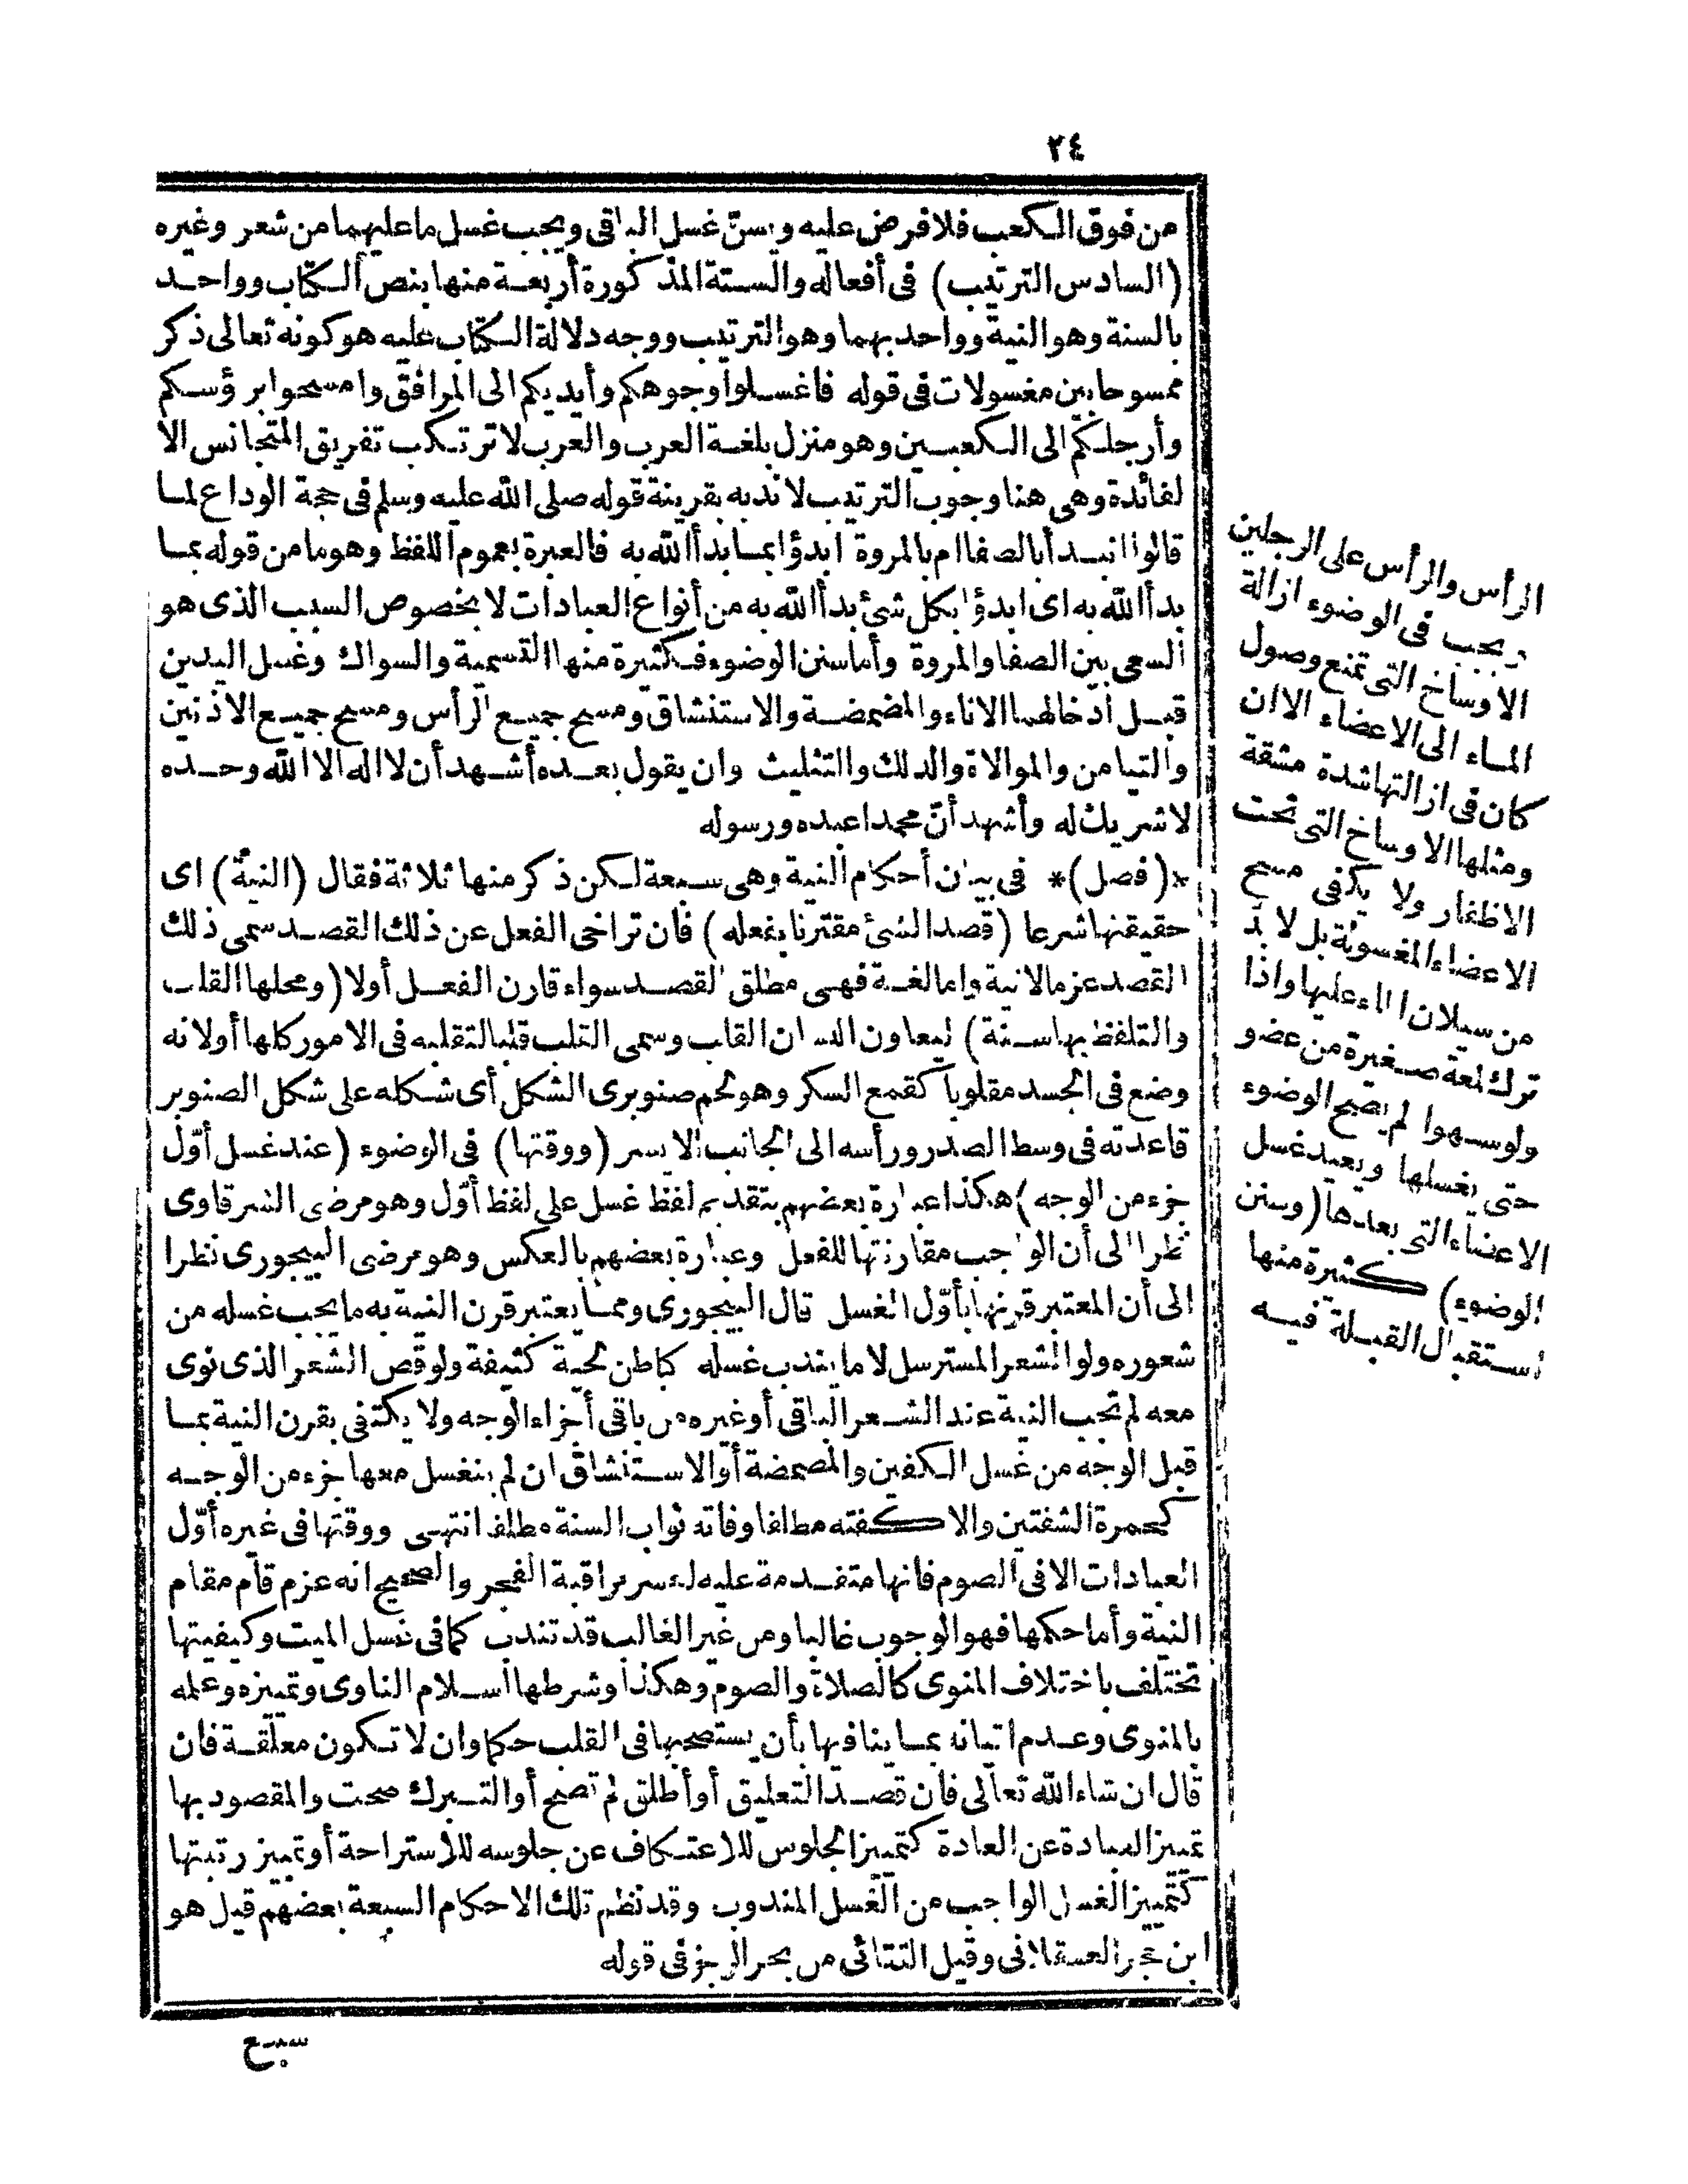 ٢٤
من فوق الكعب فلا فرض عليه ويسنّ غسل الباقى ويجب غسل ما عليهما من شعر وغيره
(السادس الترتيب) فى أفعاله والستة المذكورة أربعة منها بنص الكتاب وواحد
بالسنة وهو النية وواحد بهما وهو الترتيب ووجه دلالة الكتاب عليه هو كونه تعالى ذكر
ممسوحا بين مغسولات فى قوله فاغسلوا وجوهكم وأيديكم الى المرافق وامسحوا برؤسكم
وأرجلكم الى الكعبين وهو منزل بلغة العرب والعرب لا ترتكب تفريق المتجانس الا
لفائدة وهى هنا وجوب الترتيب لا ندبه بقرينة قوله صلى الله عليه وسلم فى حجة الوداع لما
قالوا انبدأ بالصفا ام بالمروة ابدؤا بما بدأ الله به فالعبرة بعموم اللفظ وهو ما من قوله بما
بدأ الله به اى ابدؤا بكل شئ بدأ الله به من أنواع العبادات لا بخصوص السبب الذى هو
السعى بين الصفا والمروة وأما سنن الوضوء فكثيرة منها التسمية والسواك وغسل اليدين
قبل ادخالهما الاناء والمضمضة والاستنشاق ومسح جميع الرأس ومسح جميع الاذنين
والتيامن والموالاة والدلك والتثليث وان يقول بعده أشهد أن لا اله الا الله وحده
لا شريك له وأشهد أنّ محمدا عبده ورسوله
*(فصل)* فى بيان أحكام النية وهى سبعة لكن ذكر منها ثلاثة فقال (النية) اى
حقيقتها شرعا (قصد الشئ مقترنا بفعله) فان تراخى الفعل عن ذلك القصد سمى ذلك
القصد عزما لا نية واما لغة فهى مطلق القصد سواء قارن الفعل أولا (ومحلها القلب
والتلفظ بها سنة) ليعاون اللسان القلب وسمى القلب قلبا لتقلبه فى الامور كلها أولانه
وضع فى الجسد مقلوبا كقمع السكر وهو لحم صنوبرى الشكل أى شكله على شكل الصنوبر
قاعدته فى وسط الصدر ورأسه الى الجانب الايسر (ووقتها) فى الوضوء (عند غسل أوّل
جزء من الوجه) هكذا عبارة بعضهم بتقديم لفظ غسل على لفظ أوّل وهو مرضى الشرقاوى
نظرا الى أن الواجب مقارنتها للفعل وعبارة بعضهم بالعكس وهو مرضى البيجورى نظرا
الى أن المعتبر قرنها بأوّل الغسل قال البيجورى ومما يعتبر قرن النية به ما يجب غسله من
شعوره ولو الشعر المسترسل لا ما يندب غسله كباطن لحية كثيفة ولو قص الشعر الذى نوى
معه لم تجب النية عند الشعر الباقى أو غيره من باقى أجزاء الوجه ولا يكتفى بقرن النية بما
قبل الوجه من غسل الكفين والمضمضة أو الاستنشاق ان لم ينغسل معها جزء من الوجه
كحمرة الشفتين والا كفته مطلقا وفاته ثواب السنة مطلقا انتهى ووقتها فى غيره أوّل
العبادات الا فى الصوم فانها متقدمة عليه لعسر مراقبة الفجر والصحيح انه عزم قام مقام
النية وأما حكمها فهو الوجوب غالبا ومن غير الغالب قد تندب كما فى غسل الميت وكيفيتها
تختلف باختلاف المنوى كالصلاة والصوم وهكذا وشرطها اسلام الناوى وتمييزه وعلمه
بالمنوى وعدم اتيانه بما ينافيها بأن يستصحبها فى القلب حكما وان لا تكون معلقة فان
قال ان شاء الله تعالى فان قصد التعليق أو أطلق لم تصح أو التبرك صحت والمقصود بها
تمييز العبادة عن العادة كتمييز الجلوس للاعتكاف عن جلوسه للاستراحة أو تمييز رتبتها
كتمييز الغسل الواجب من الغسل المندوب وقد نظم تلك الاحكام السبعة بعضهم قيل هو
ابن حجر العسقلانى وقيل التتائى من بحر الرجز فى قوله
سبع
الرأس والرأس على الرجلين
ويجب فى الوضوء ازالة
الاوساخ التى تمنع وصول
الماء الى الاعضاء الا ان
كان فى ازالتها شدة مشقة
ومثلها الاوساخ التى تحت
الاظفار ولا يكفى مسح
الاعضاء المغسولة بل لا بد
من سيلان الماء عليها واذا
ترك لمعة صغيرة من عضو
ولو سهوا لم يصح الوضوء
حتى يغسلها ويعيد غسل
الاعضاء التى بعدها (وسنن
الوضوء) كثيرة منها
استقبال القبلة فيه